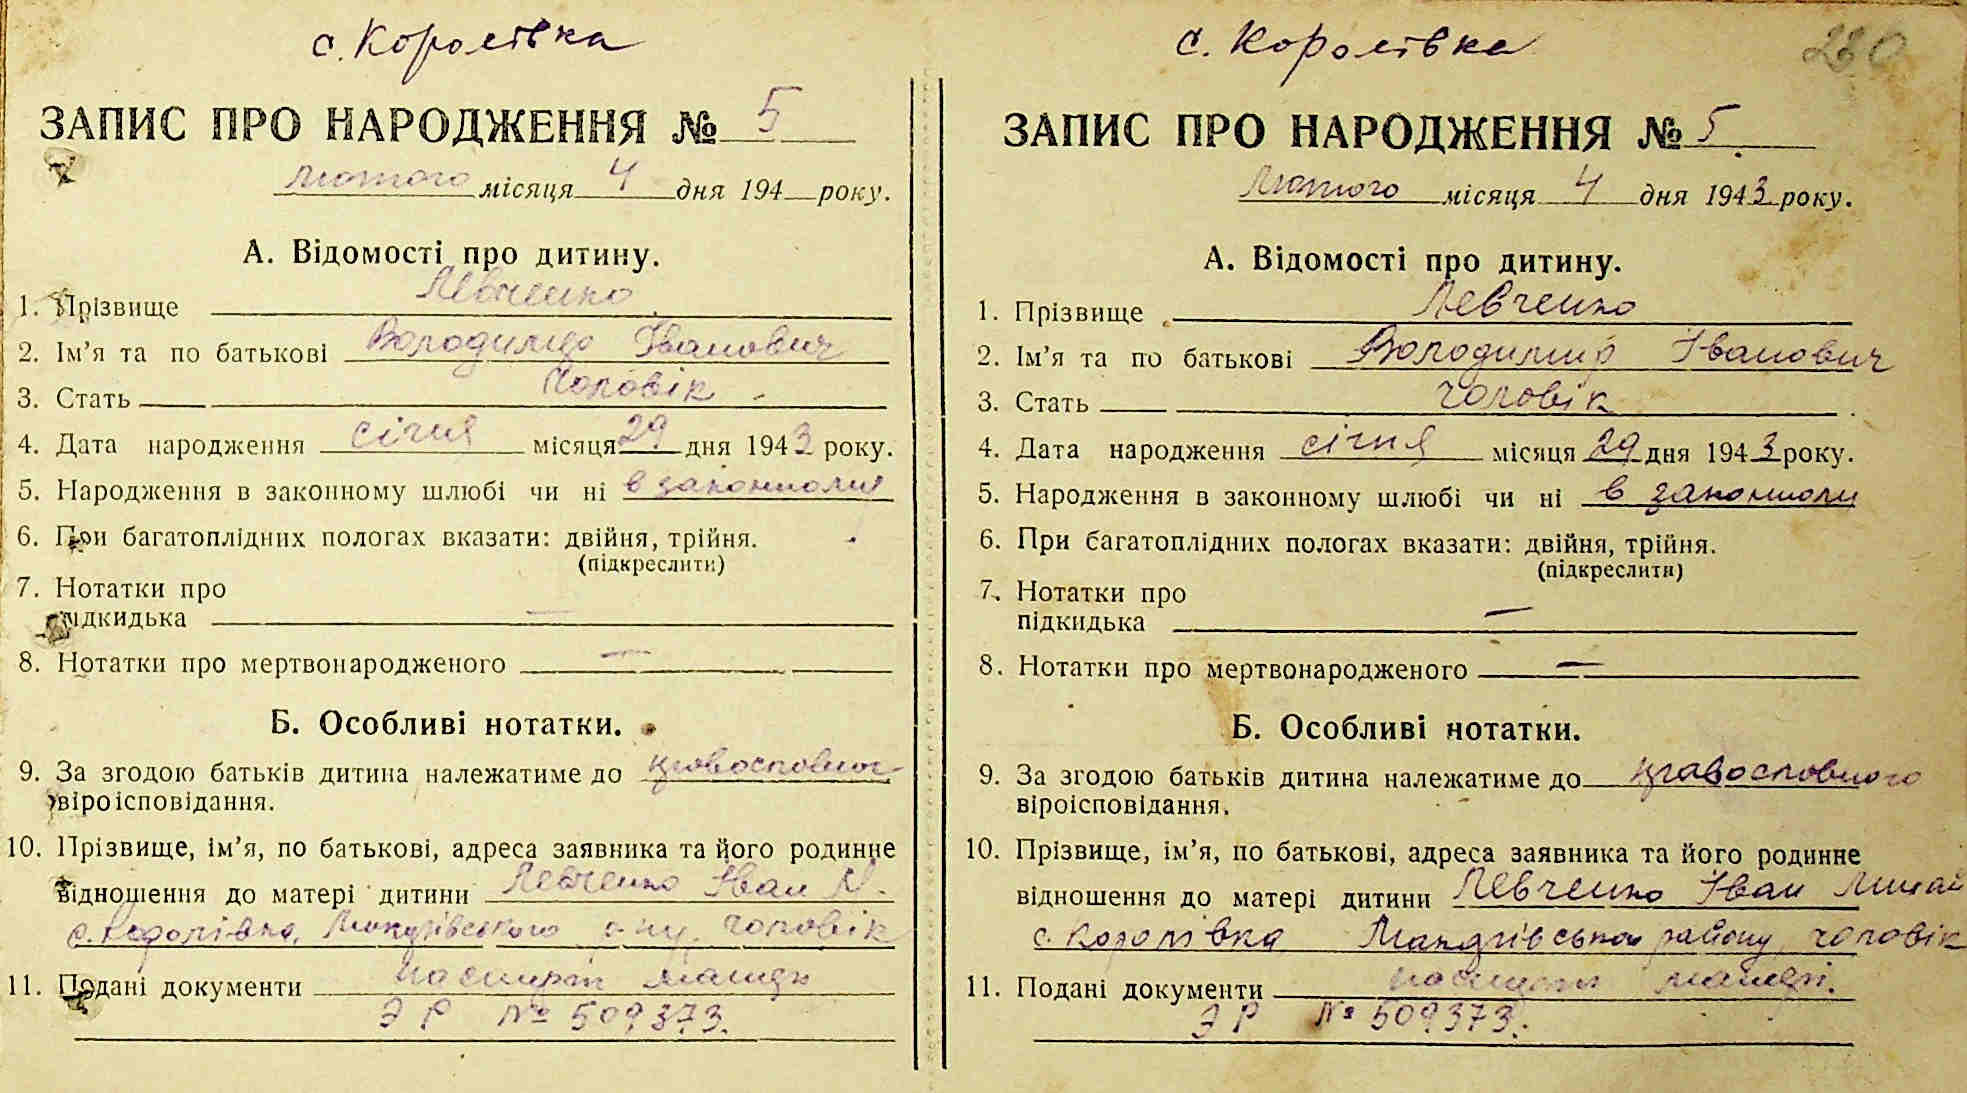 с. Королівка
ЗАПИС ПРО НАРОДЖЕННЯ № 5
лютого місяця 4 дня 194 року.
А. Відомості про дитину.
1. Прізвище Левченко
2. Ім’я та по батькові Володимир Іванович
3. Стать Чоловік
4. Дата народження січня місяця 29 дня 1943 року.
5. Народження в законному шлюбі чи ні в законному
6. При багатоплідних пологах вказати: двійня, трійня.
(підкреслити)
7. Нотатки про
підкидька —
8. Нотатки про мертвонародженого —
Б. Особливі нотатки.
9. За згодою батьків дитина належатиме до
віроісповідання.
10. Прізвище, ім’я, по батькові, адреса заявника та його родинне
відношення до матері дитини Левченко Іван М.
с. Королівка, р-ну, чоловік
11. Подані документи паспорт матері
ЭР № 509373.
с. Королівка
280
ЗАПИС ПРО НАРОДЖЕННЯ № 5
Лютого місяця 4 дня 1943 року.
А. Відомості про дитину.
1. Прізвище Левченко
2. Ім’я та по батькові Володимир Іванович
3. Стать чоловік
4. Дата народження січня місяця 29 дня 1943 року.
5. Народження в законному шлюбі чи ні в законному
6. При багатоплідних пологах вказати: двійня, трійня.
(підкреслити)
7. Нотатки про
підкидька —
8. Нотатки про мертвонародженого —
Б. Особливі нотатки.
9. За згодою батьків дитина належатиме до православного
віроісповідання.
10. Прізвище, ім’я, по батькові, адреса заявника та його родинне
відношення до матері дитини Левченко Іван Михай
с. Королівка Макарівського району, чоловік
11. Подані документи паспорт матері.
ЭР № 509373.